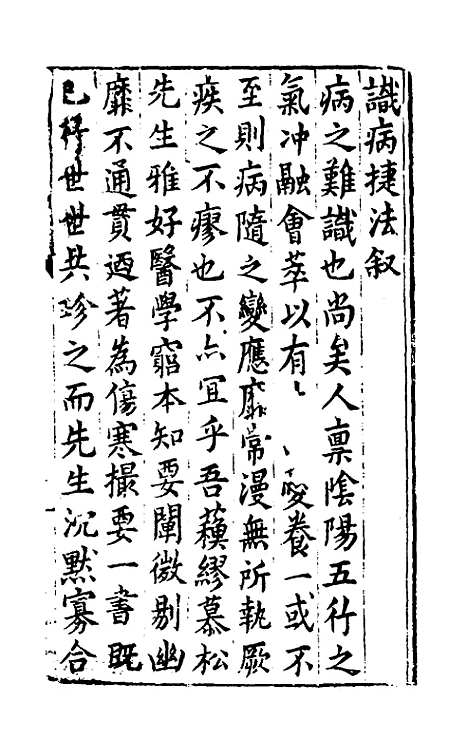 識病捷法叙
病之難識也尚矣人禀陰陽五行之
氣冲融會萃以有養一或不
至則病隨之變應靡常漫無所執厥
疾之不瘳也不亦宜乎吾蘓繆慕松
先生雅好醫學窮本知要闡微剔幽
靡不通貫迺著為傷寒撮要一書既
已行世世共珍之而先生沉默寡合